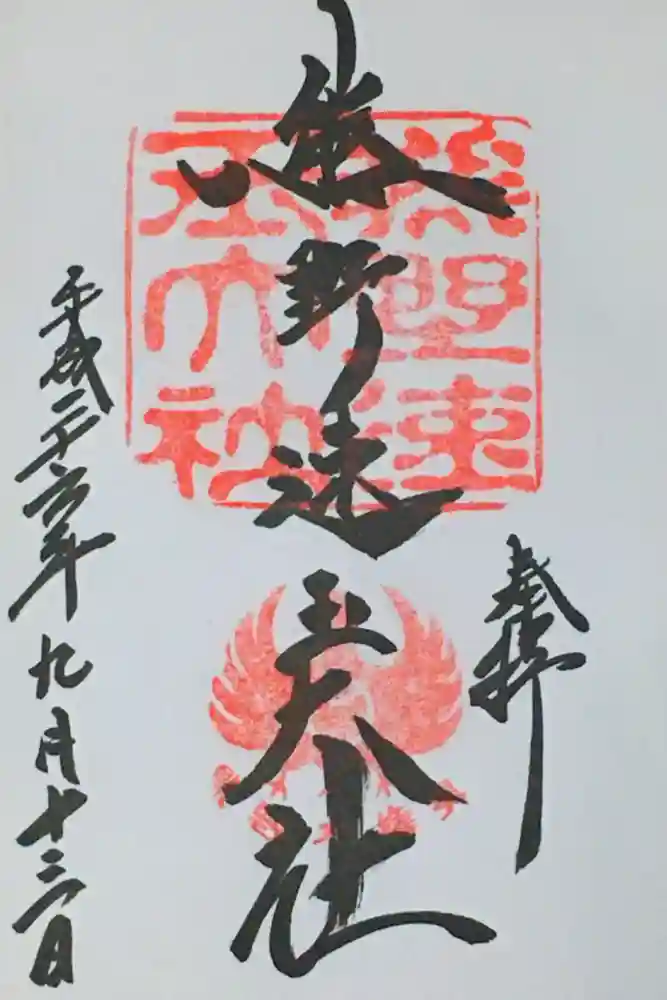 奉拝
熊野速玉大社
熊野速玉大社
平成二十六年九月十三日